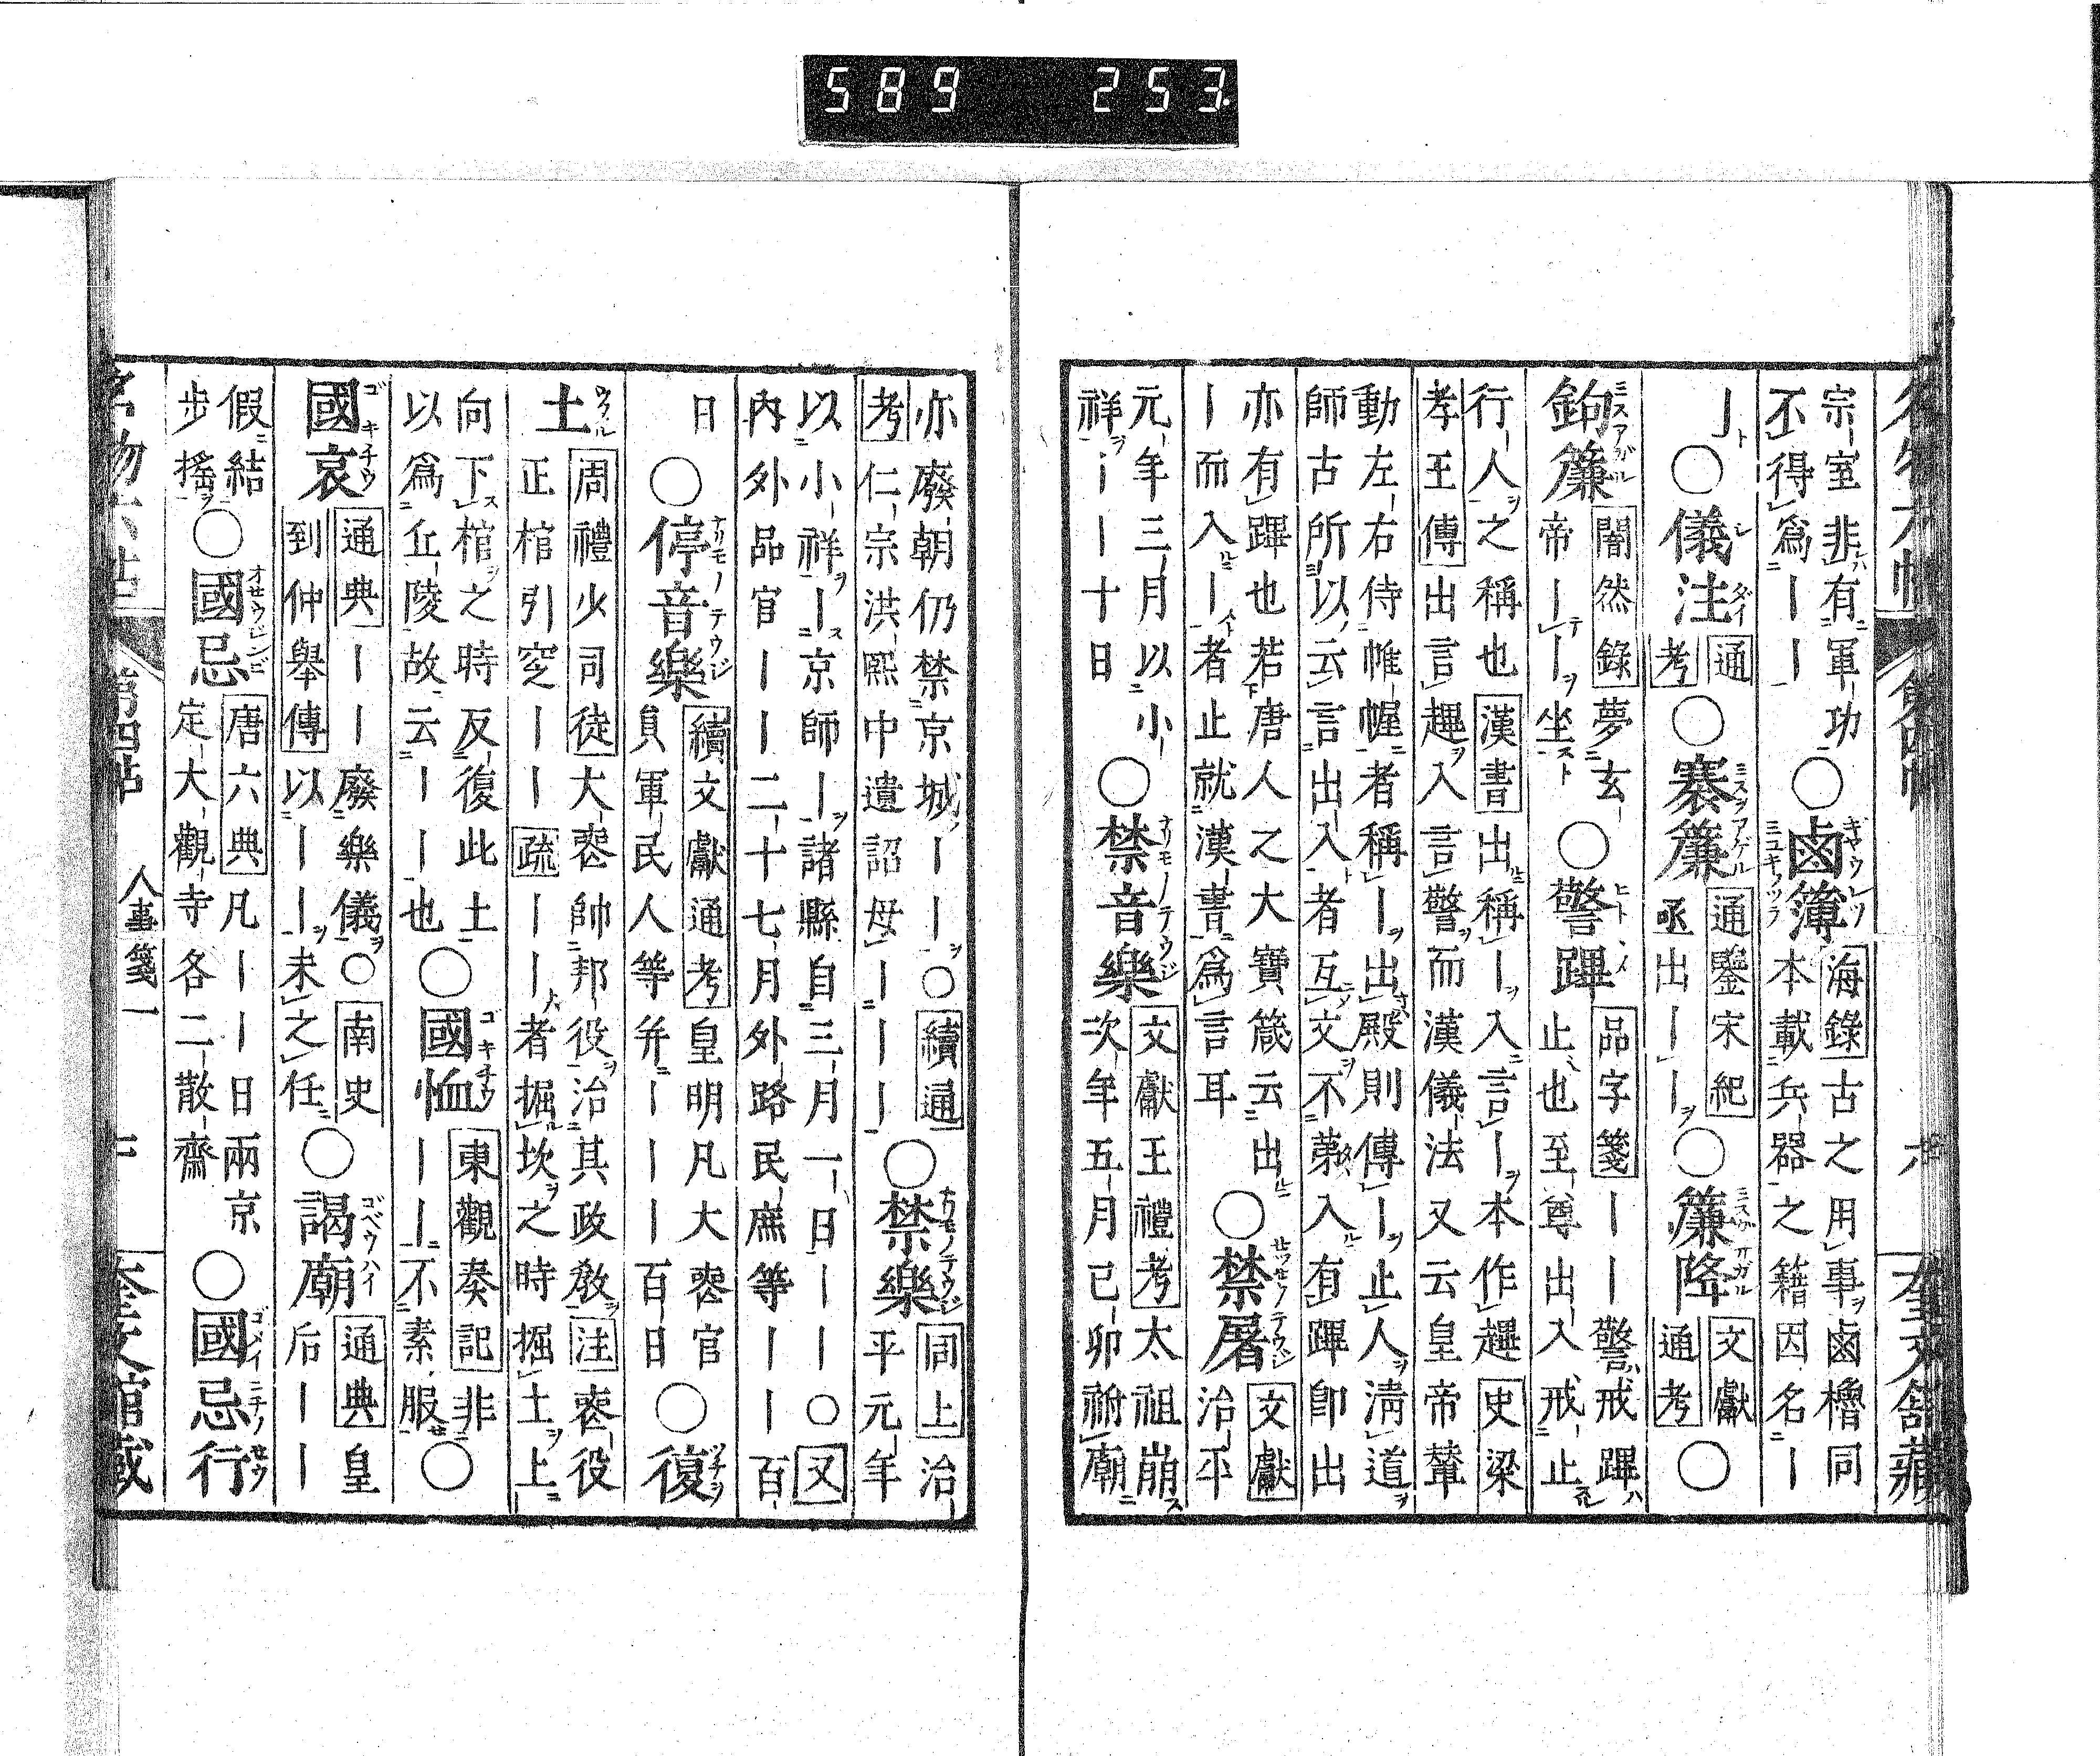 589 253
宗室非有軍功
不得爲｜｜
○鹵簿
海錄古之用事鹵櫓同
本載兵器之籍因名｜
｜○儀注
通
考
○褰簾
通鑒宋紀
丞出｜｜
○簾降
文獻
通考
○
鉤簾
闇然錄夢玄
帝｜｜坐
○警蹕
品字箋｜｜警戒蹕
止也至尊出入戒止
行人之稱也漢書出稱｜入言｜本作趩史梁
孝王傳出言趩入言警而漢儀法又云皇帝輦
動左右侍帷幄者稱｜出殿則傳｜止人淸道
師古所以云言出入者互文不苐入有蹕卽出
亦有蹕也若唐人之大寶箴云出
｜而入｜者止就漢書爲言耳
○禁屠
文獻
治平
元年三月以小
祥｜｜十日
○禁音樂
文獻王禮考太祖崩
次年五月已卯祔廟
亦廢朝仍禁京城｜｜○續通
考仁宗洪熙中遺詔毋｜｜｜
○禁樂
同上治
平元年
以小祥｜京師｜諸縣自三月一日｜｜○又
內外品官｜｜二十七月外路民庶等｜｜百
日○停音樂
續文獻通考皇明凡大喪官
員軍民人等并｜｜｜百日
○復
土
周禮少司徒大喪帥邦役治其政敎注喪役
正棺引窆｜｜疏｜｜者掘坎之時掘土上
向下棺之時反復此土
以爲丘陵故云｜｜也
○國恤
東觀奏記非
｜｜不素服
○
國哀
通典｜｜廢樂儀○南史
到仲舉傳以｜｜未之任
○謁廟
通典皇
后｜｜
假結
步搖
○國忌
唐六典凡｜｜日兩京
定大觀寺各二散齋
○國忌行
第四帖
人事箋一
奎文館藏